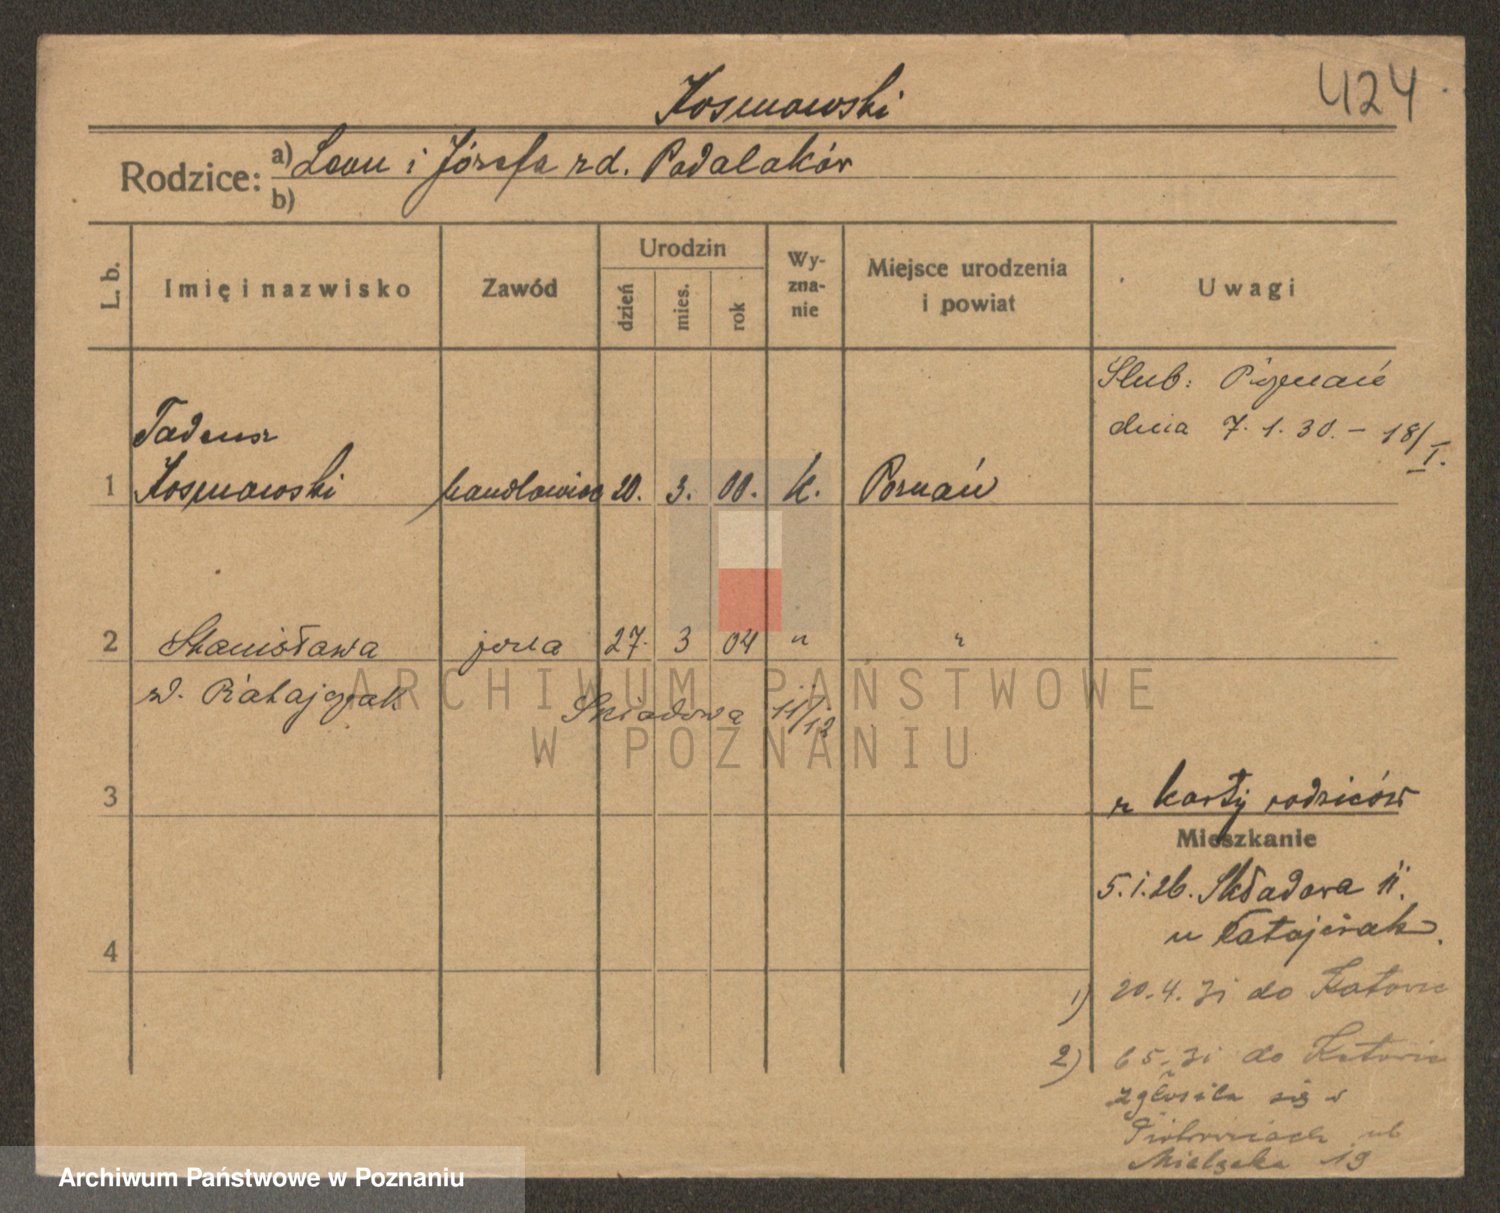 424
Kosmowski
Rodzice: a) Leon i Józefa z d. Padalaków
b)
L. b. Imię i nazwisko Zawód Urodzin dzień mies. rok Wy-zna-nie Miejsce urodzenia i powiat Uwagi
Ślub: Poznań
dnia 7. 1. 30. – 18/I.
Tadeusz
1 Kosmowski handlowiec 20. 3. 00. k. Poznań
2 Stanisława żona 27. 3 04 " "
z d. Ratajczak
Składowa 11/12
3
z karty rodziców
Mieszkanie
5.1.26. Składowa 11.
u Ratajczak.
4
1) 20.4.31 do Katowic
2) 6 5. 31 do Katowic
zgłosiła się w
Piotrowicach ul
19
ARCHIWUM PAŃSTWOWE
W POZNANIU
Archiwum Państwowe w Poznaniu